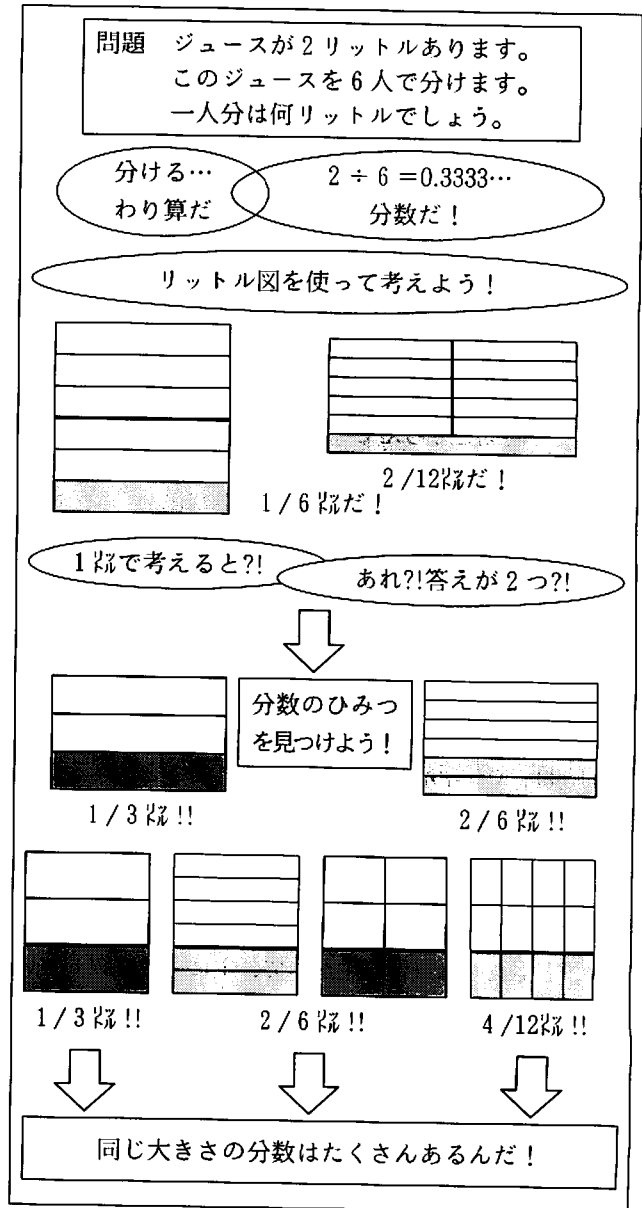 問題　ジュースが2リットルあります。
このジュースを6人で分けます。
一人分は何リットルでしょう。
分ける…
わり算だ
2÷6=0.3333…
分数だ!
リットル図を使って考えよう!
1/6㍑だ!
2/12㍑だ!
1㍑で考えると?!
あれ?!答えが2つ?!
分数のひみつ
を見つけよう!
1/3㍑!!
2/6㍑!!
1/3㍑!!
2/6㍑!!
4/12㍑!!
同じ大きさの分数はたくさんあるんだ!